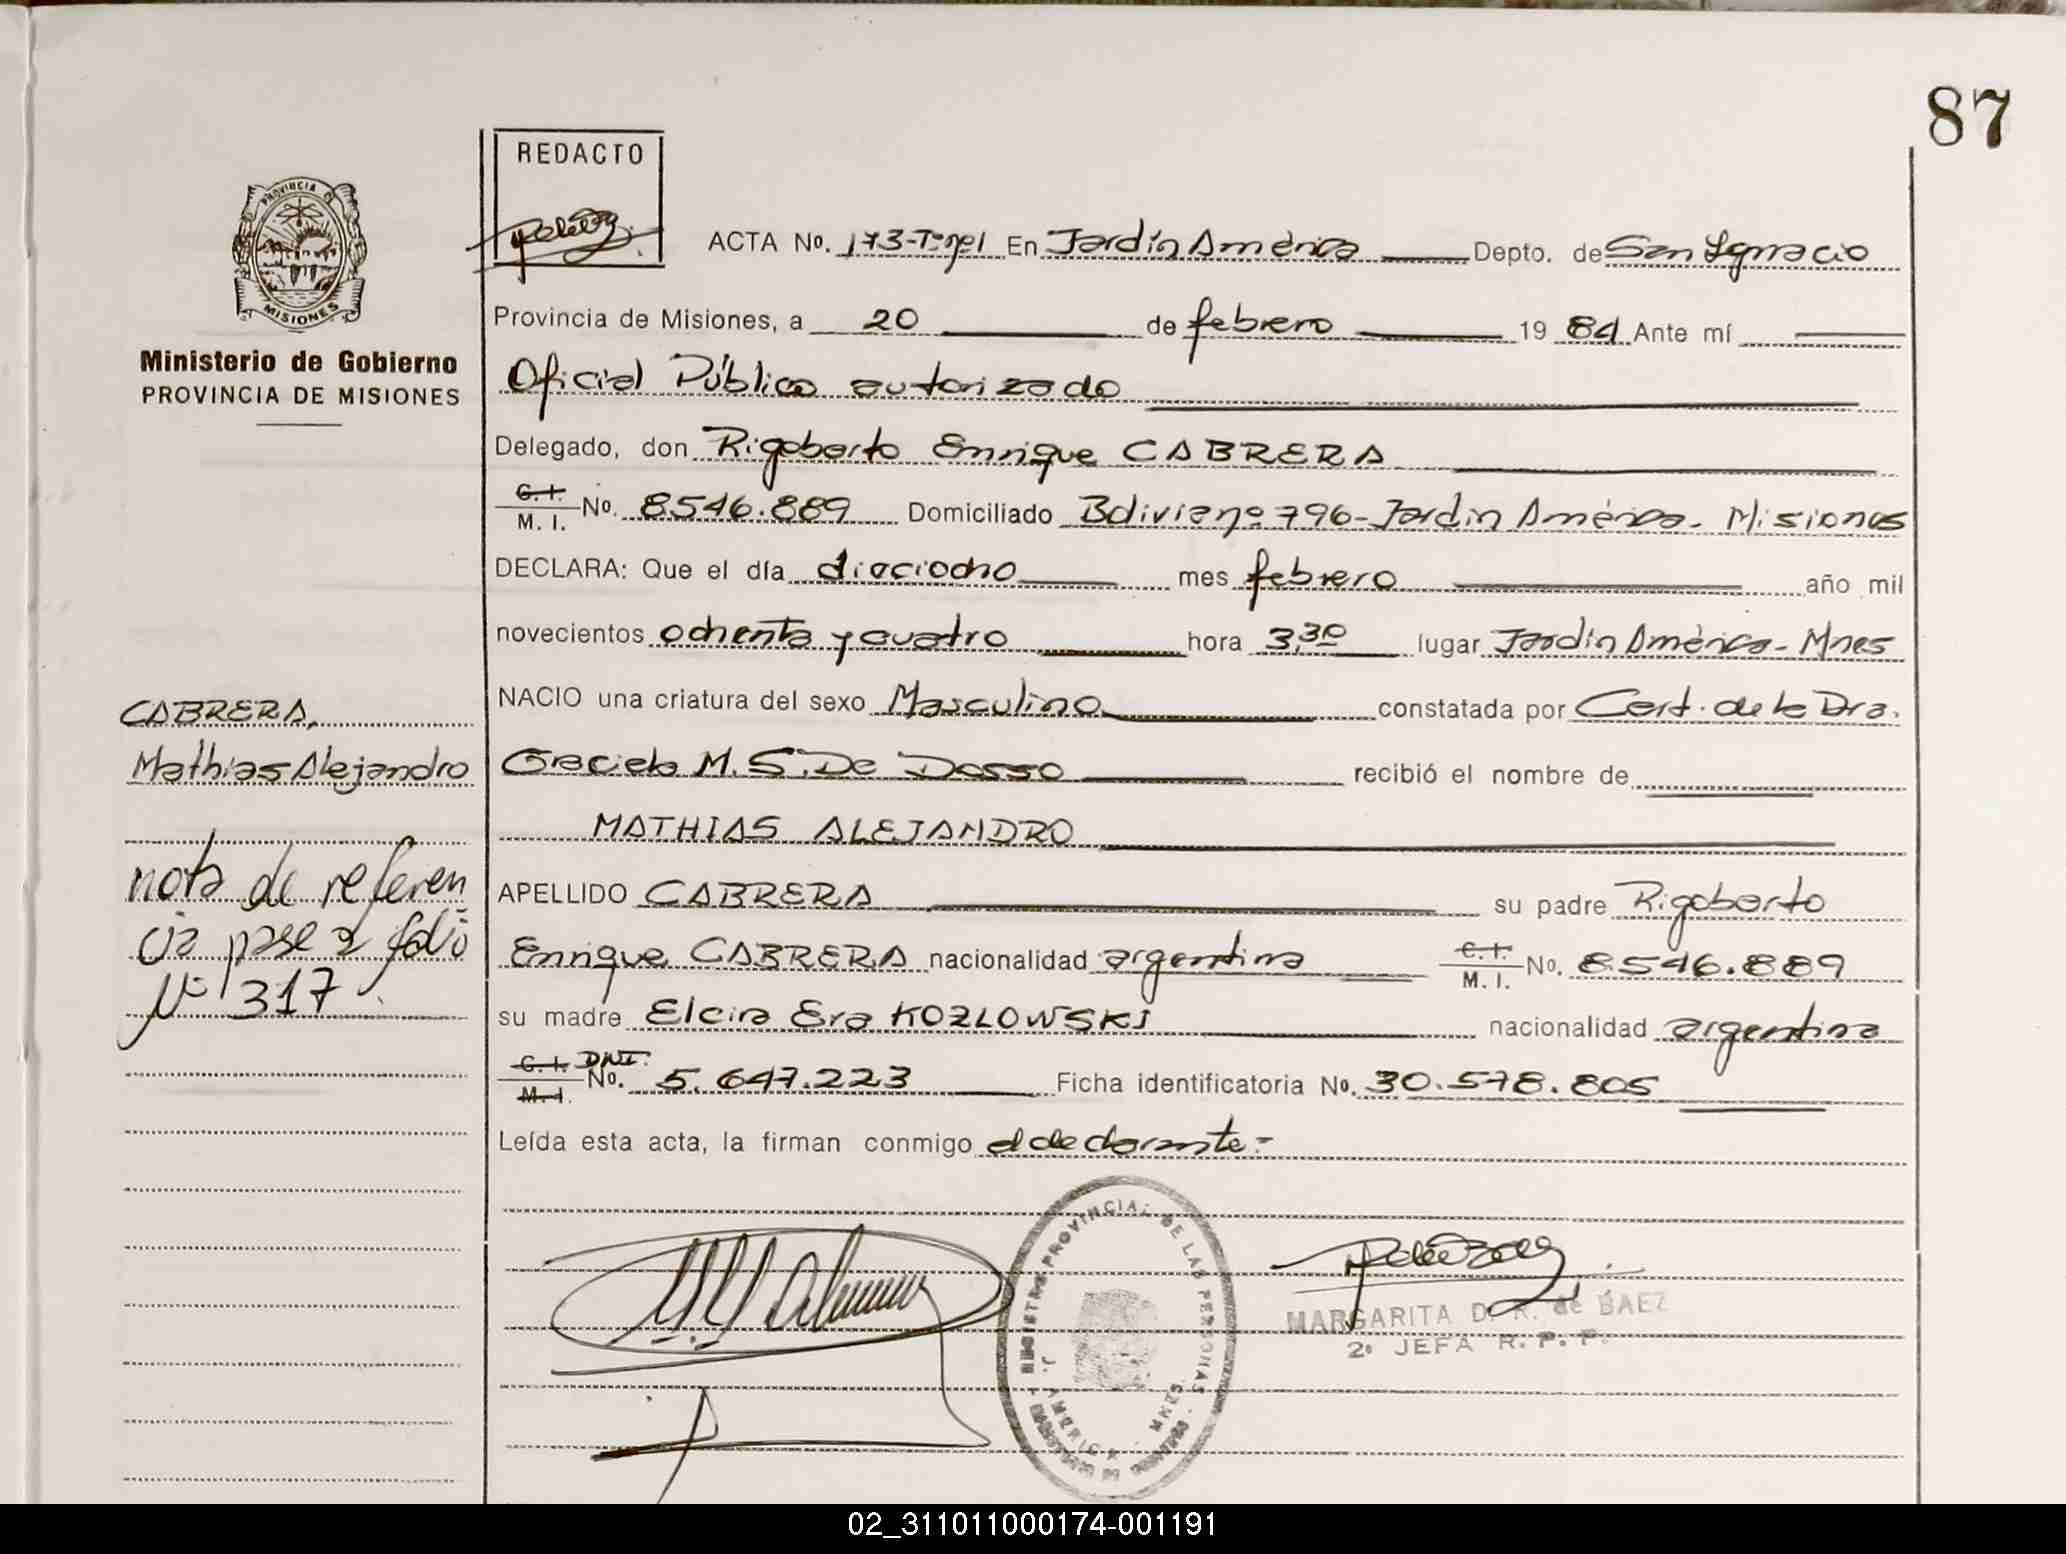 87
REDACTO
PROVINCIA DE
MISIONES
Ministerio de Gobierno
PROVINCIA DE MISIONES
ACTA No. 173-Tº I En Jardín América Depto. de San Ignacio
Provincia de Misiones, a 20 de febrero 19 84 Ante mí
Oficial Público autorizado
Delegado, don Rigoberto Enrique CABRERA
C. I. M. I. No. 8546.889 Domiciliado Bolivia nº 796-Jardín América- Misiones
DECLARA: Que el día dieciocho mes febrero año mil
novecientos ochenta y cuatro hora 3,30 lugar Jardín América- Mnes
NACIO una criatura del sexo Masculino constatada por Cert. de la Dra.
Graciela M. S. De Dosso recibió el nombre de
MATHIAS ALEJANDRO
APELLIDO CABRERA su padre Rigoberto
Enrique CABRERA nacionalidad argentina C. I. M. I. No. 8.546.889
su madre Elcira Eva KOZLOWSKI nacionalidad argentina
C. I. M. I. DNI. No. 5.647.223 Ficha identificatoria No. 30.578.805
Leída esta acta, la firman conmigo el declarante.=
CABRERA,
Mathias Alejandro
nota de referen
cia pase a folio
Nº 317
REGISTRO PROVINCIAL DE LAS PERSONAS
J. AMERICA - MNES.
MARGARITA D. R. de BAEZ
2º JEFA R. P. P.
02_311011000174-001191